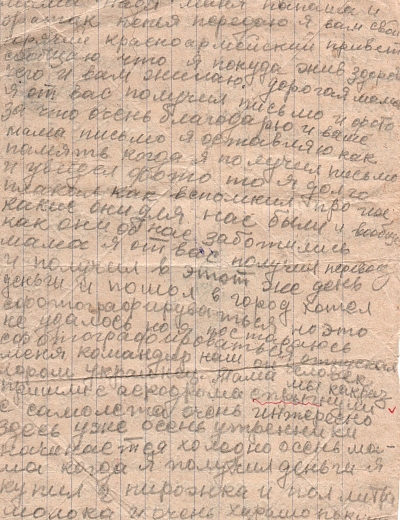 мама Надя Маня папаша и
братик Пеня передаю я вам свой
горячий красноармейский привет
сообщаю что я покуда жив здоров
чего и вам желаю. дорогая мама
я от вас получил письмо и фото
за что очень благодарю и ваше
мама письмо я оставляю как
память когда я получил письмо
и увидел фото то я долго
плакал как вспомнил про
какие они для нас были и вообще
как они об нас заботились
мама я от вас получил перевод
и получил в этот же день
деньги и пошол в город хотел
сфотографироваться но это
не удалось но я постараюсь
сфотографироваться
меня командир наш он
украинец. Мама человек
пришли с аеродрома мы как раз
с самолета очень интересно
здесь уже осень утренники
начинается холодно осень ма-
ма когда я получил деньги я
купил 2 пирожка и пол литра
молока и очень хорошо